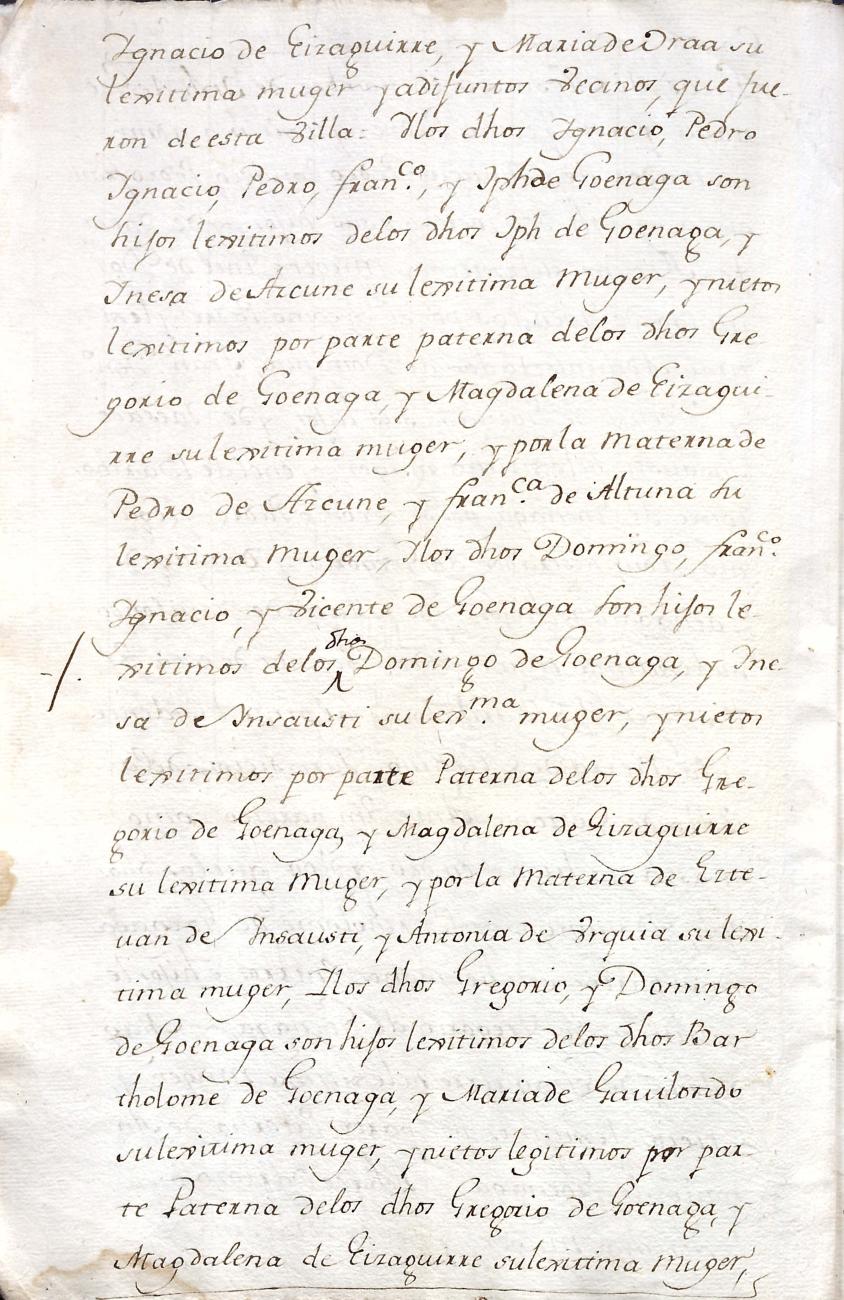 Ignacio de Eizaguirre, y Maria de Oraa su
lexitima muger y adifuntos Vecinos, que fue-
ron de esta Villa: Ilos dhos Ignacio, Pedro
Ignacio, Pedro, fran.co, y Iph de Goenaga son
hijos lexitimos delos dhos Iph de Goenaga, y
Inesa de Azcune su lexitima Muger, y nietos
lexitimos por parte paterna delos dhos Gre
gorio de Goenaga, y Magdalena de Eizagui-
rre su lexitima muger, y por la Materna de
Pedro de Azcune, y fran.ca de Altuna su
lexitima Muger, Ilos dhos Domingo, fran.co
Ignacio, y Vicente de Goenaga son hijos le-
xitimos delos dhos Domingo de Goenaga, y Ine-
sa de Insausti su lex.ma muger, y nietos
lexitimos por parte Paterna delos dhos Gre-
gorio de Goenaga, y Magdalena de Eizaguirre
su lexitima Muger, y por la Materna de Este-
uan de Insausti, y Antonia de Vrquia su lexi-
tima muger, Ilos dhos Gregorio, y Domingo
de Goenaga son hijos lexitimos delos dhos Bar
tholome de Goenaga, y Maria de Gauilondo
su lexitima muger, y nietos legitimos por par-
te Paterna delos dhos Gregorio de Goenaga, y
Magdalena de Eizaguirre su lexitima Muger,